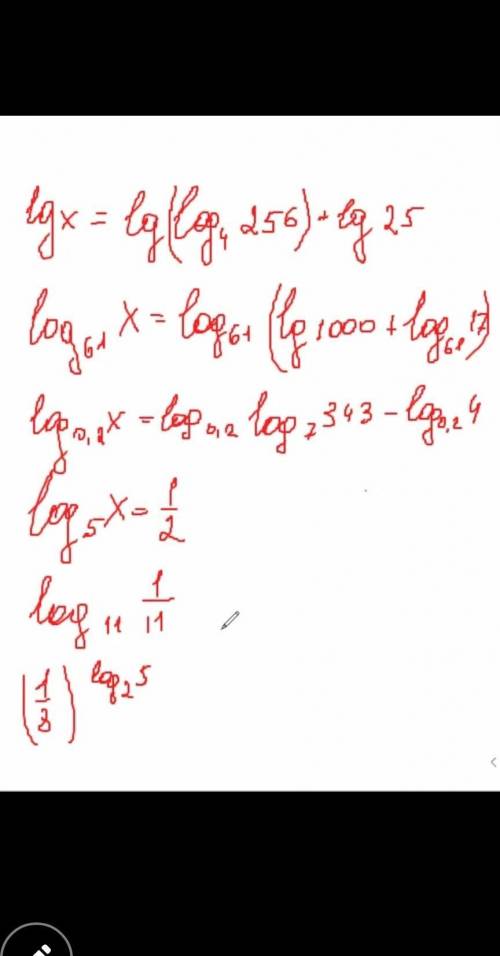 lg x = lg(log₄ 256) + lg 25
log₆₁ x = log₆₁ (lg 1000 + log₆₁ 17)
log₀,₂ x = log₀,₂ log₇ 343 - log₀,₂ 4
log₅ x = 1/2
log₁₁ 1/11
(1/8)^log₂5